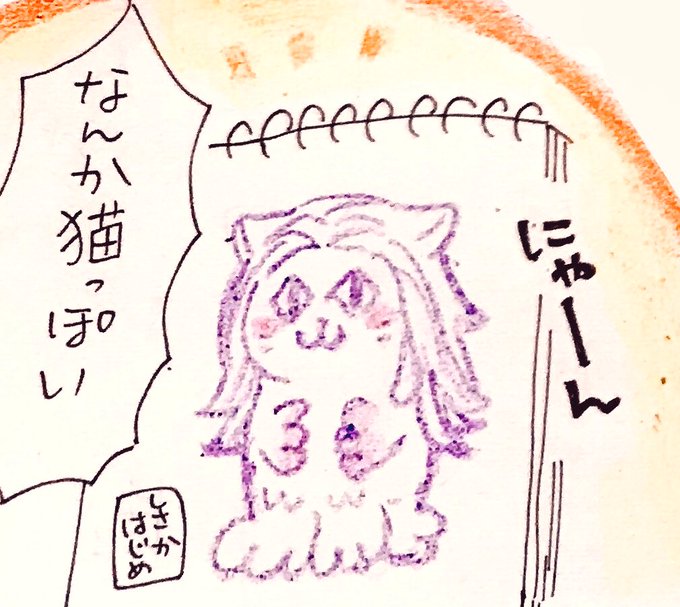 にゃーん
なんか猫っぽい
しさか
はじめ